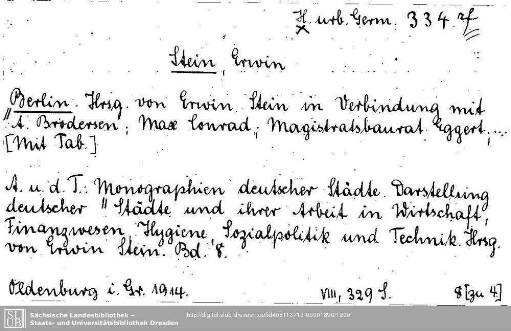 H. urb. Germ. 334 rf
x
Stein, Erwin
Berlin. Hrsg. von Erwin Stein in Verbindung mit
A. Brodersen; Max Conrad; Magistratsbaurat Eggert,...
[Mit Tab.]
A. u. d. T.: Monographien deutscher Städte. Darstellung
deutscher Städte und ihrer Arbeit in Wirtschaft,
Finanzwesen, Hygiene, Sozialpolitik und Technik. Hrsg.
von Erwin Stein. Bd. 8.
Oldenburg i. Gr. 1914. VIII, 329 S. 8 [zu 4]
SLUB
Sächsische Landesbibliothek –
Staats- und Universitätsbibliothek Dresden